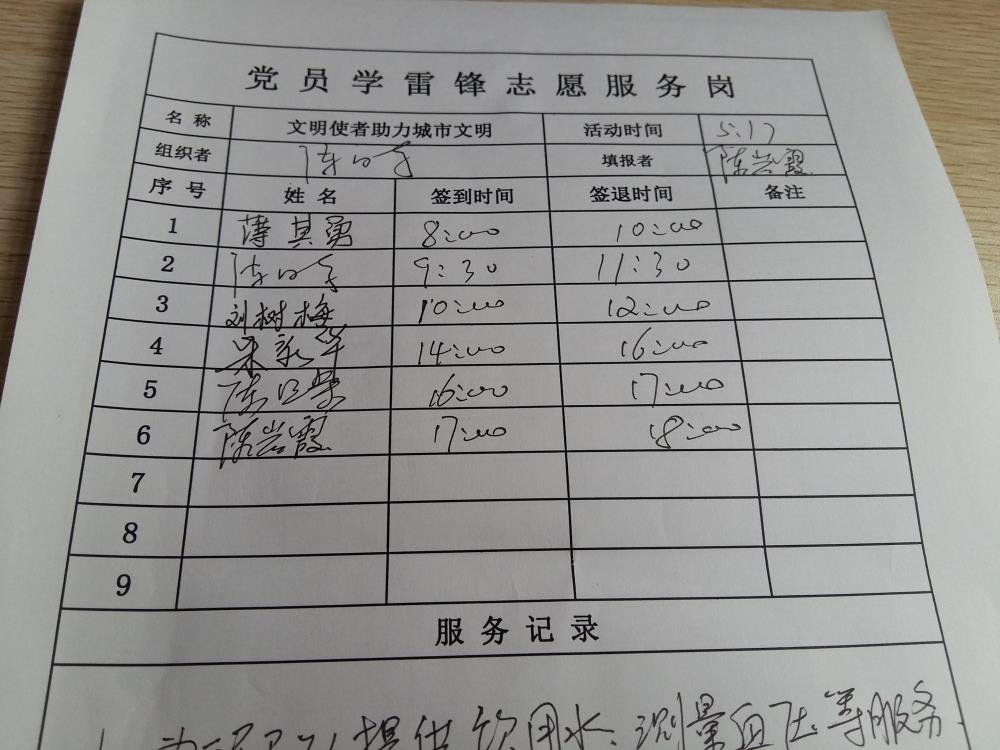 党员学雷锋志愿服务岗
名称 文明使者助力城市文明 活动时间 5.17
组织者 陈 填报者 陈岩霞
序号 姓名 签到时间 签退时间 备注
1 薄其勇 8:00 10:00
2 陈 9:30 11:30
3 刘树梅 10:00 12:00
4 14:00 16:00
5 陈 16:00 17:00
6 陈岩霞 17:00 18:00
7
8
9
服务记录
提供饮用水、测量血压等服务